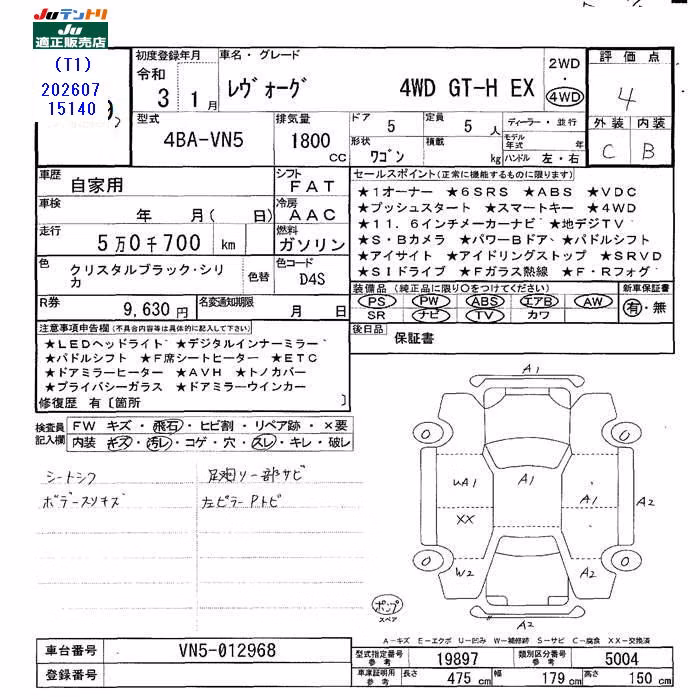 Juテントリ
JU
適正販売店
(T1)
202607
15140
初度登録年月
令和
3 1月
車名・グレード
レヴォーグ 4WD GT-H EX
2WD
・
4WD
評価点
4
外装 内装
C B
型式
4BA-VN5
排気量
1800
CC
ドア 5
定員 5 人
形状 ワゴン
積載 kg
ディーラー・並行
モデル年式 年
ハンドル 左・右
車歴
自家用
シフト
FAT
車検
年 月( 日)
冷房
AAC
走行
5万0千700 km
燃料
ガソリン
色
クリスタルブラック・シリカ
色替
色コード
D4S
R券
9,630円
名変通知期限
月 日
セールスポイント(正常に機能するものに限ります)
★1オーナー ★6SRS ★ABS ★VDC
★プッシュスタート ★スマートキー ★4WD
★11.6インチメーカーナビ ★地デジTV
★S・Bカメラ ★パワーBドア ★パドルシフト
★アイサイト ★アイドリングストップ ★SRVD
★SIドライブ ★Fガラス熱線 ★F・Rフォグ
装備品(純正品に限り○をつけてください)
新車保証書
PS PW ABS エアB AW
SR ナビ TV カワ
有・無
後日品
保証書
注意事項申告欄(不具合内容等は具体的に記入して下さい)
★LEDヘッドライト ★デジタルインナーミラー
★パドルシフト ★F席シートヒーター ★ETC
★ドアミラーヒーター ★AVH ★トノカバー
★プライバシーガラス ★ドアミラーウインカー
修復歴 有〔箇所 〕
検査員記入欄
FW キズ・飛石・ヒビ割・リペア跡・×要
内装 キズ・汚レ・コゲ・穴・スレ・キレ・破レ
シートシワ
ボデースリキズ
足廻り一部サビ
左ピラーPトビ
A1
0 0
UA1 A1 A1 A2
XX
W2 A2
0 0
A2
ポンプ
スペア
A-キズ E-エクボ U-凹み W-補修跡 S-サビ C-腐食 XX-交換済
車台番号
VN5-012968
登録番号
型式指定番号
参考
19897
類別区分番号
参考
5004
車庫証明用
参考
長さ 475 cm
幅 179 cm
高さ 150 cm